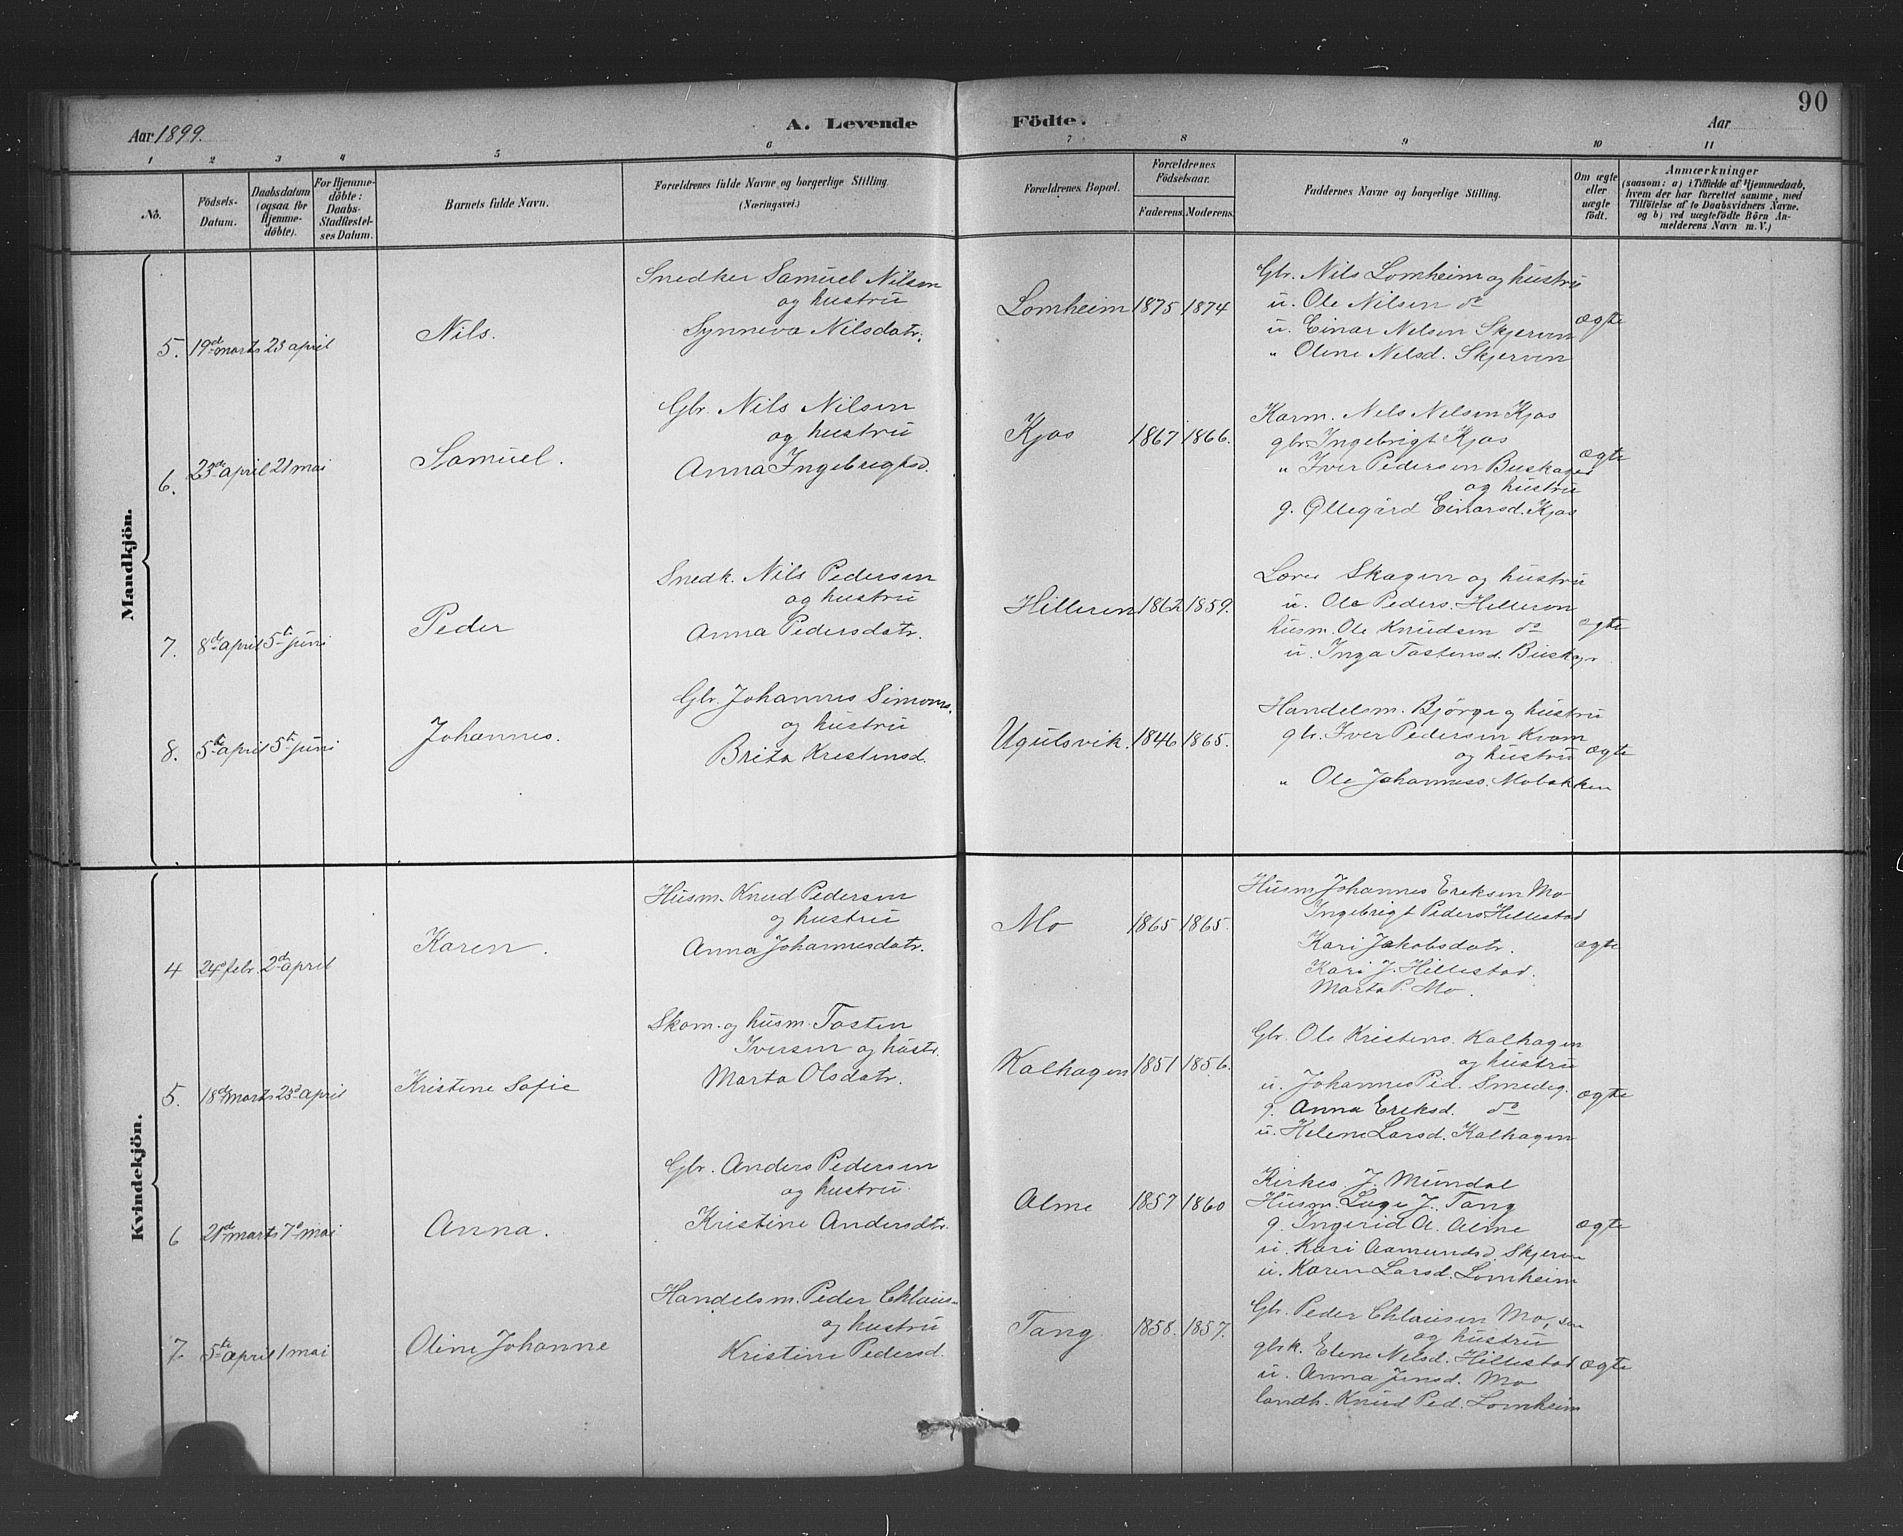 90
Aar 1899.
A. Levende Födte.
Aar
1 2 3 4 5 6 7 8 9 10 11
No.
Födsels-Datum.
Daabsdatum (ogsaa for Hjemme-döbte).
For Hjemme-döbte: Daabs-Stadfæstel-ses Datum.
Barnets fulde Navn.
Forældrenes fulde Navne og borgerlige Stilling. (Næringsvei.)
Forældrenes Bopæl.
Forældrenes Födselsaar.
Faderens. Moderens.
Faddernes Navne og borgerlige Stilling.
Om ægte eller uægte födt.
Anmærkninger
(saasom: a) i Tilfælde af Hjemmedaab,
hvem der har forrettet samme, med
Tilföielse af to Daabsvidners Navne.
og b) ved uægtefödte Börn An-
melderens Navn m. V.)
Mandkjön.
5. 19d marts 23 april
Nils.
Snedker Samuel Nilsen
og hustru
Synneva Nilsdatr.
Lomheim 1875 1874
Gbr. Nils Lomheim og hustru
u. Ole Nilsen do
u. Einar Nelsen Skjerven
" Oline Nelsd. Skjerven
ægte
6. 23d april 21 mai
Samuel.
Gbr. Nils Nilsen
og hustru
Anna Ingebregtsd.
Kjos 1867 1866.
Karm. Nels Nelsen Kjos
gbr. Ingebrigt Kjos
" Iver Pedersen Buskager
og hustru
g. Øllegård Einarsd. Kjos
ægte
7. 8d april 5te juni
Peder
Snedk. Nils Pedersen
og hustru
Anna Pedersdatr.
Hilleren 1862 1859.
Lærer Skagen og hustru
u. Ole Peders. Hilleren
husm. Ole Knudsen do
u. Inga Tostensd. Buskager
ægte
8. 5te april 5te juni
Johannes.
Gbr. Johannes Simons.
og hustru
Brita Kristensd.
Ugulsvik. 1846 1865.
Handelsm. Björge og hustru
gbr. Iver Pedersen Kvam
og hustru
" Ole Johanness. Mobakken
ægte
Kvindekjön.
4 24d febr. 2d april
Karen.
Husm. Knud Pedersen
og hustru
Anna Johannesdatr.
Mo 1865 1865.
Husm Johannes Eriksen Mo
Ingebrigt Peders Hillestad
Kari Jakobsdatr.
Kari J. Hillestad.
Marta P. Mo.
ægte
5. 18d marts 23d april
Kristine Sofie
Skom. og husm. Tosten
Iversen og hustr.
Marta Olsdatr.
Kalhagen 1851 1856.
Gbr. Ole Kristens. Kalhagen
og hustru
u. Johannes Ped. Smedeg.
g. Anna Eriksd. do
u. Helene Larsd. Kalhagen
ægte
6 21d marts 7d mai
Anna.
Gbr. Anders Pedersen
og hustru.
Kristine Andersdtr.
Alme 1857 1860
Kirkes. J. Mundal
Husm. Lage J. Tang
g. Ingerid A. Alme
u. Kari Aamundsd. Skjerven
u. Karen Larsd. Lomheim
ægte
7. 5te april 1 mai
Oline Johanne
Handelsm. Peder Chlaus-
og hustru
Kristine Pedersd.
Tang. 1858. 1857.
Gbr. Peder Chlausen Mo, sen
og hustru
gbrk. Elene Nelsd. Hillestad
u. Anna Jensd. Mo
landh. Knud Ped. Lomheim
ægte